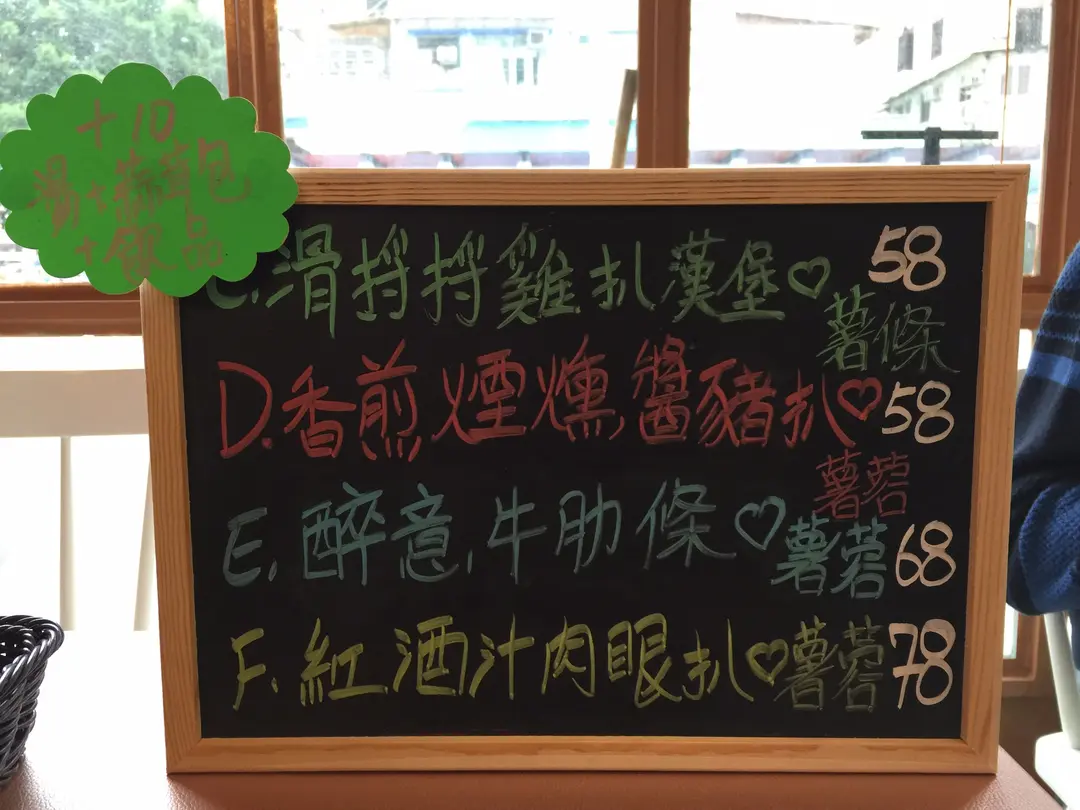 +10
湯+蒜茸包
+飲品
C.滑捋捋雞扒漢堡♡ 58
薯條
D.香煎煙燻醬豬扒♡ 58
薯蓉
E.醉意牛肋條♡薯蓉 68
F.紅酒汁肉眼扒♡薯蓉 78